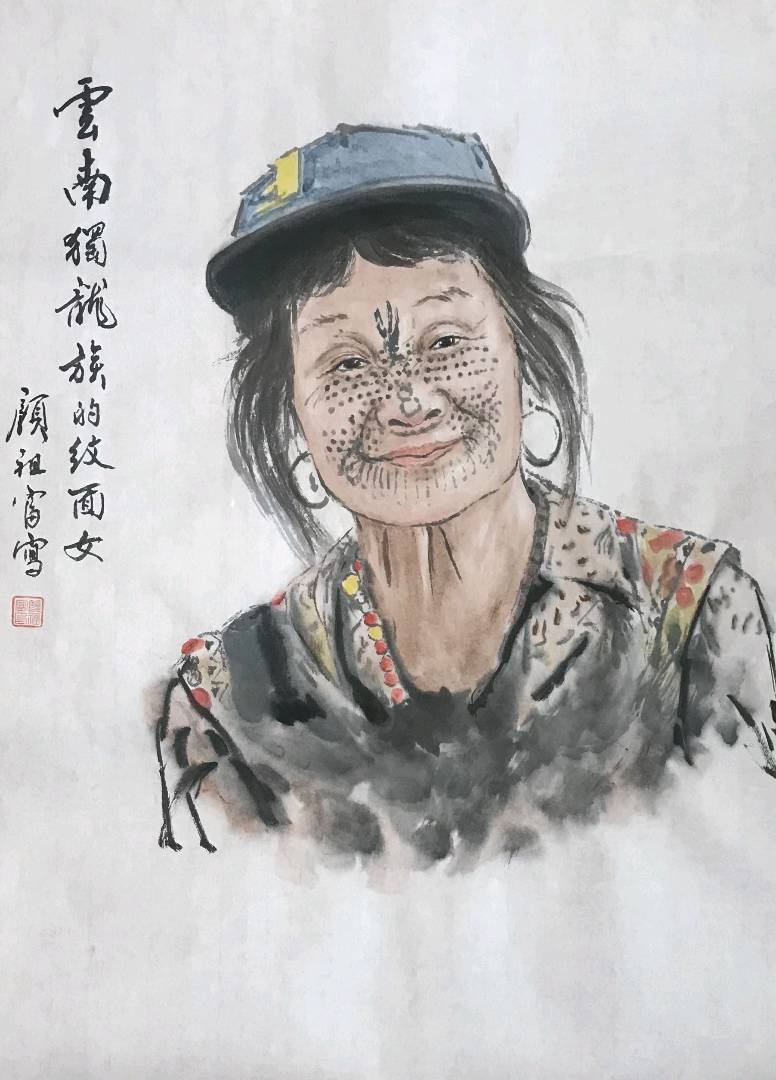 雲南獨龍族的紋面女
顧祖富寫